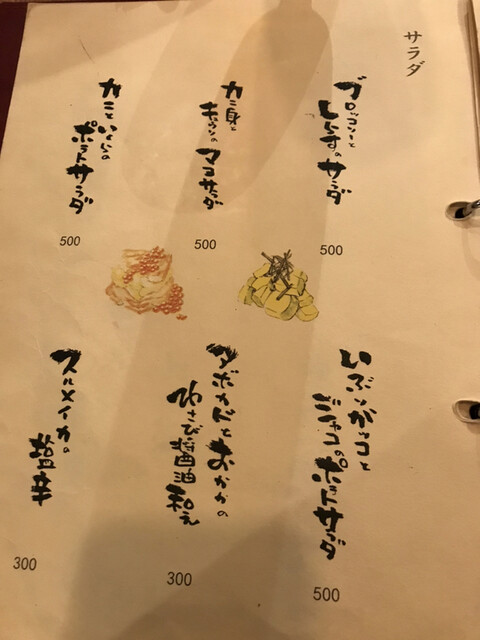 サラダ
ブロッコリーと
しらすのサラダ
500
カニ身と
キュウリの
マヨサラダ
500
カニといくらの
ポテトサラダ
500
いぶりガッコと
ジャコのポテトサラダ
500
アボカドとおかかの
わさび醤油和え
300
スルメイカの
塩辛
300